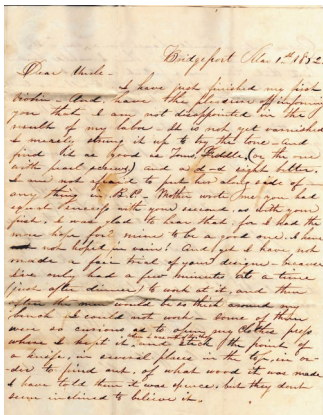 Bridgeport Mar 1st 1852
Dear Uncle -
I have just finished my first
violin - and have the pleasure of informing
you that I am not disappointed in the
result of my labor - It is not yet varnished
I merely strung it up to try the tone - and
find it as good as Toms Fiddle, (or the one
with pearl screws) and a-d-d sight better.
I am not afraid to put her along side of
any thing in B.P. Mother wrote me you had
success with your second, as with your
first - I was glad to hear that as I had the
more hope for mine to be a good one. I have
not hoped in vain! And yet I have not
made a fair trial of your design - because
I've only had a few minutes at a time
(just after dinner) to work at it, and then
often the men would be so thick around my
bench I could not work - some of them
were so curious as to open my clothes press
where I kept it, and stick the point of
a knife, in several places in the top, in or-
der to find out, of what wood it was made
I have told them it was spruce, but they dont
seem inclined to believe it.